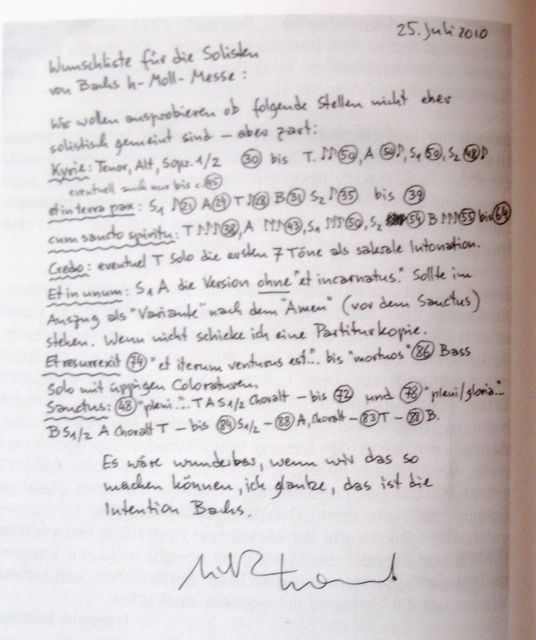 25. Juli 2010
Wunschliste für die Solisten
von Bachs h-Moll-Messe:
Wir wollen ausprobieren ob folgende Stellen nicht eher
solistisch gemeint sind – aber zart:
Kyrie: Tenor, Alt, Sopr. 1/2 (30) bis T. ♪♪(50), A (50)♪, S1 (50), S2 (48)♪
eventuell auch nur bis c. (45)
et in terra pax: S1 ♪(21) A(24) T♪(28) B(31) S2 ♪(35) bis (39)
cum sancto spiritu: T♪♪♪(38), A ♪♪♪(43), S1 ♪♪♪(50), S2 (54) B♪♪♪(55) bis (64)
Credo: eventuel T solo die ersten 7 Töne als sakrale Intonation.
Et in unum: S1 A die Version ohne "et incarnatus." Sollte im
Auszug als "Variante" nach dem "Amen" (vor dem Sanctus)
stehen. Wenn nicht schicke ich eine Partiturkopie.
Et resurrexit (74) "et iterum venturus est".. bis "mortuos" (86) Bass
Solo mit üppigen Coloraturen.
Sanctus: (48) "pleni.".. T A S1/2 Choralt – bis (72) und (78) "pleni/gloria"..
B S1/2 A Choralt T – bis (84) S1/2 – (88) A, Choralt – (83) T – (88) B.
Es wäre wunderbar, wenn wir das so
machen können, ich glaube, das ist die
Intention Bachs.